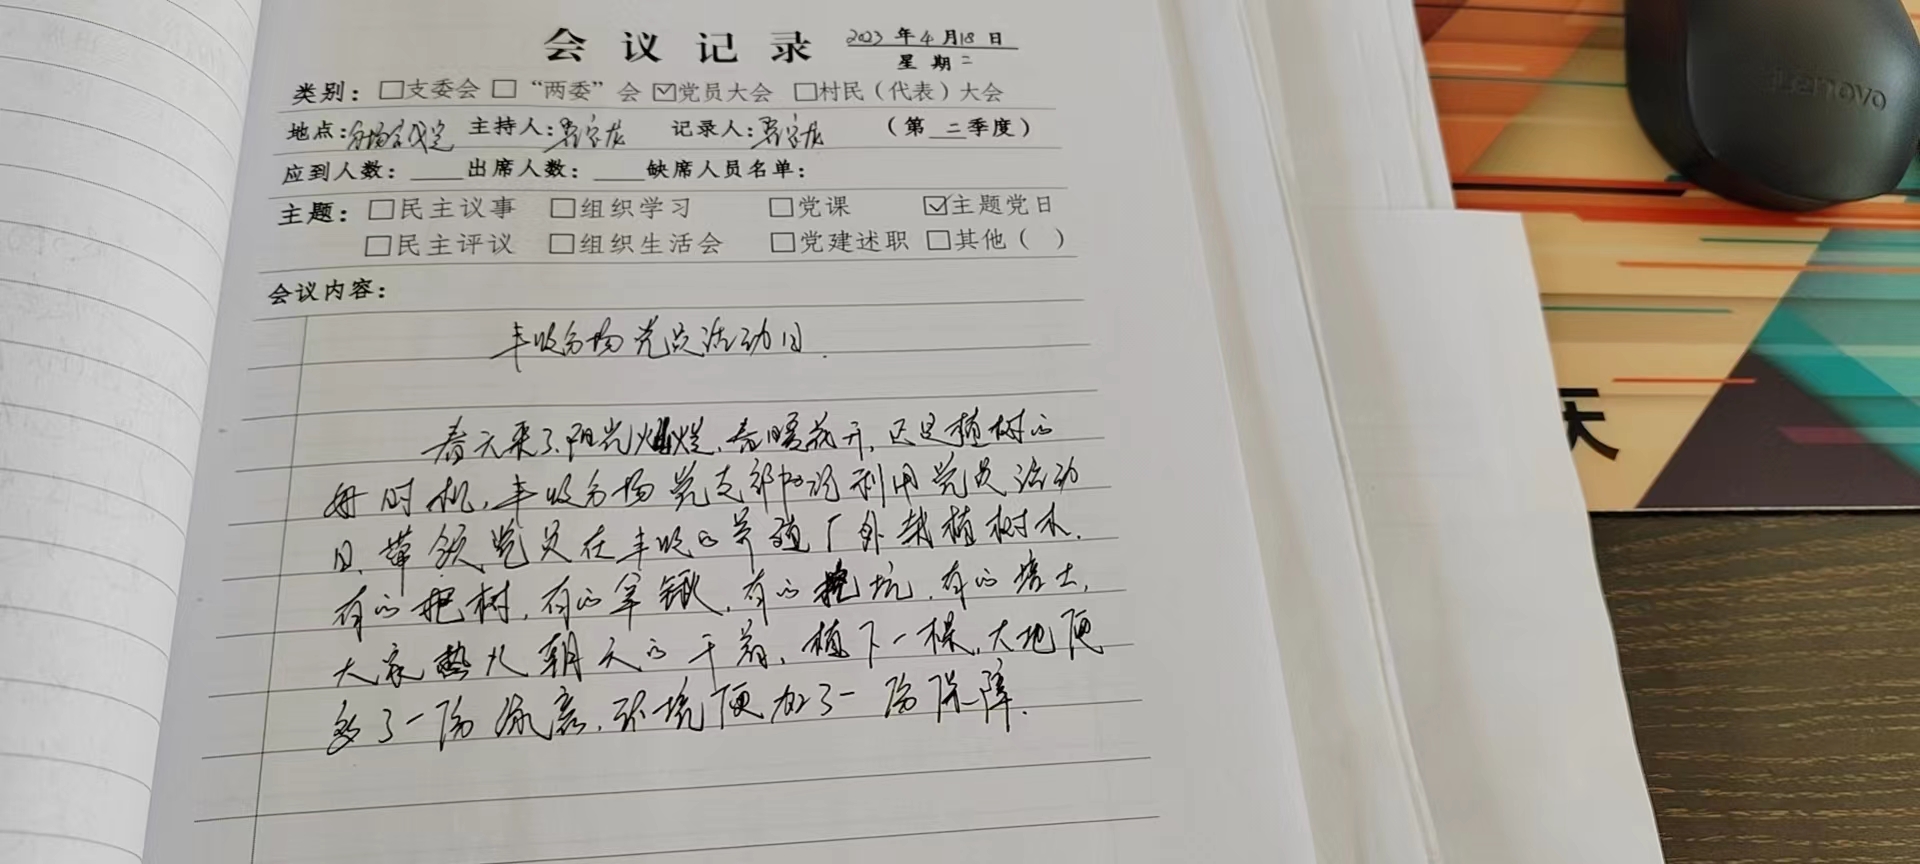 会议记录 2023年4月18日
星期二
类别：□支委会 □“两委”会 ☑党员大会 □村民（代表）大会
地点：分场会议室 主持人： 记录人： （第二季度）
应到人数：____出席人数：____缺席人员名单：
主题：□民主议事 □组织学习 □党课 ☑主题党日
□民主评议 □组织生活会 □党建述职 □其他（ ）
会议内容：
丰收分场党员活动日.
春天来了,阳光灿烂,春暖花开,这是植树的
好时机,丰收分场党支部利用党员活动
日,带领党员在丰收的养殖厂外栽植树木.
有的抱树,有的拿锹,有的挖坑,有的培土,
大家热火朝天的干着,植下一棵,大地便
多了一份绿意,环境便加了一份保障.
lenovo
天